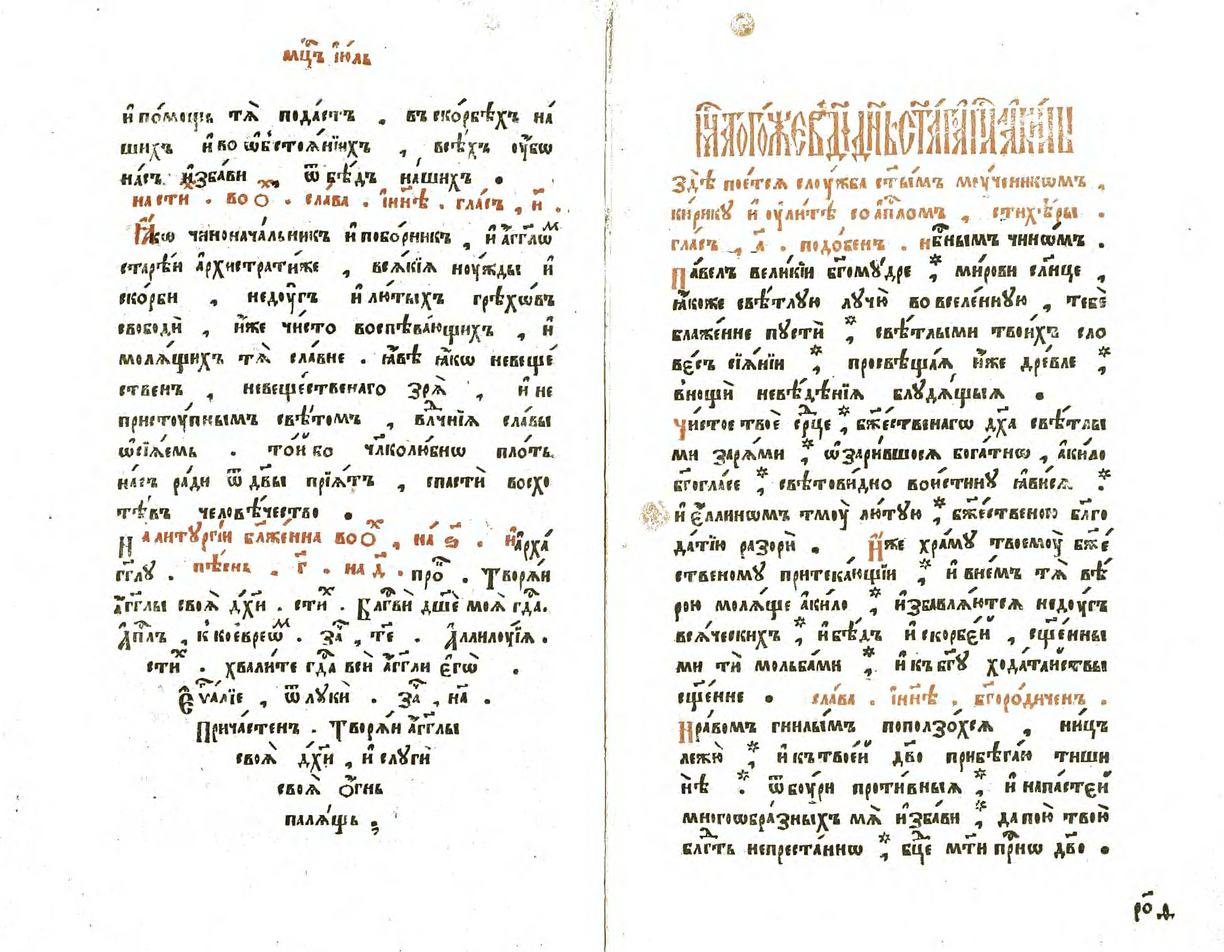 мц҃ъ і҆ю́ль
и҆ по́мощь тѧ̀ пода́стъ . въ ско́рбѣхъ на́
шихъ и҆ во ѡ҆бстоѧ́нїихъ , всѣ́хъ оу҆́бѡ
на́съ и҆зба́ви , ѿ бѣ́дъ на́шихъ .
на сти х . во о х . сла́ва . і҆ ны́нѣ . гла́съ , и҃ .
Ꙗ҆́кѡ чинонача́льникъ и҆ побо́рникъ , и҆ а҆́гг҃лѡм
старѣ́и а҆рхистрати́же , всѧ́кїѧ ноу́жды и҆
ско́рби , недоу́гъ и҆ лю́тыхъ грѣхо́въ
свободѝ , и҆́же чи́сто воспѣва́ющихъ , и҆
молѧ́щихъ тѧ̀ сла́вне . ꙗ҆́вѣ ꙗ҆́кѡ невеще́
ственъ , невеще́ственаго зрѧ̀ , и҆ не
пристоу́пнымъ свѣ́томъ , влⷣчнїѧ сла́вы
ѡ҆сїѧ́емь . то́и бо чл҃колю́бнѡ пло́ть
на́съ ра́ди ѿ дв҃ы прїѧ́тъ , спастѝ восхо
тѣ́въ человѣ́чество .
На литꙋргі́и бл҃же́нна во о х , на ѕ҃ . и҆ а҆рха́
гг҃лу . пѣ́снь . г҃ . на д҃ . про . Творѧ́и
а҆́гг҃лы своѧ̀ дх҃и . сти х . Бл҃гвѝ дш҃е моѧ̀ гдⷭ҇а .
А҆пⷭ҇лъ , к кое҆вре́ѡм . за , т҃е . А҆ллилоу́їа .
сти х . хвали́те гдⷭ҇а всѝ а҆́гг҃ли е҆гѡ̀ .
Е҆ѵⷢ҇алїе , ѿ лукѝ . за , н҃а .
Прича́стенъ . Творѧ́и а҆́гг҃лы
своѧ̀ дх҃и , и҆ слугѝ
своѧ̀ о҆́гнь
палѧ́щь ;
Тогѡ́же въ д҃і дн҃ь ст҃а́гѡ а҆пⷭ҇ла а҆ки́лы
Здѣ̀ пое́тсѧ слоу́жба ст҃ы́мъ моу́ченикѡмъ ,
ки́рику и҆ оу҆ли́тѣ со а҆пⷭ҇ломъ , стихѣ́ры .
гла́съ , д҃ . подо́бенъ . нбⷭ҇нымъ чинѡ́мъ .
Па́велъ вели́кїи бг҃ому́дре ,* ми́рови сл҃нце ,
ꙗ҆́коже свѣ́тлую лучю̀ во вселе́нную , тебѐ
блаже́нне пустѝ ,* свѣ́тлыми твои́хъ сло
ве́съ сїѧ́нїи ,* просвѣща́ѧ и҆́же дре́вле ,*
в нощѝ невѣ́дѣнїѧ блудѧ́щыѧ .
Чи́стое твоѐ срⷣце ,* бжⷭ҇твенагѡ дх҃а свѣ́тлы
ми зарѧ́ми ,* ѡ҆зари́вшосѧ бога́тнѡ , а҆ки́ло
бг҃огла́се ,* свѣтови́дно вои́стину ꙗ҆ви́сѧ . *
и҆ е҆́ллинѡмъ тмоу̀ лю́тую ,* бжⷭ҇твеною бл҃го
да́тїю разорѝ . И҆́же хра́му твоемоу̀ бжⷭ҇е́
ственому притека́ющїи ,* и҆ в не́мъ тѧ̀ вѣ́
рою молѧ́ще а҆ки́ло ,* и҆збавлѧ́ютсѧ недоу́гъ
всѧ́ческихъ ,* и҆ бѣ́дъ и҆ скорбе́и , сщ҃е́нны
ми тѝ мольба́ми ,* и҆ къ бг҃у хода́таиствы
сщ҃е́нне . сла́ва . і҆ ны́нѣ . бг҃оро́диченъ .
Нра́вомъ гни́лымъ поползо́хсѧ , ни́цъ
лежю̀ ,* и҆ къ твое́и дв҃о прибѣга́ю тиши
нѣ̀ . * ѿ боу́ри проти́вныѧ ,* и҆ напа́стеи
многоѡбра́зныхъ мѧ̀ и҆зба́ви ,* да пою̀ твою̀
бл҃гть непреста́ннѡ ,* бц҃е мт҃и прⷭ҇нѡ дв҃о .
ро҃д